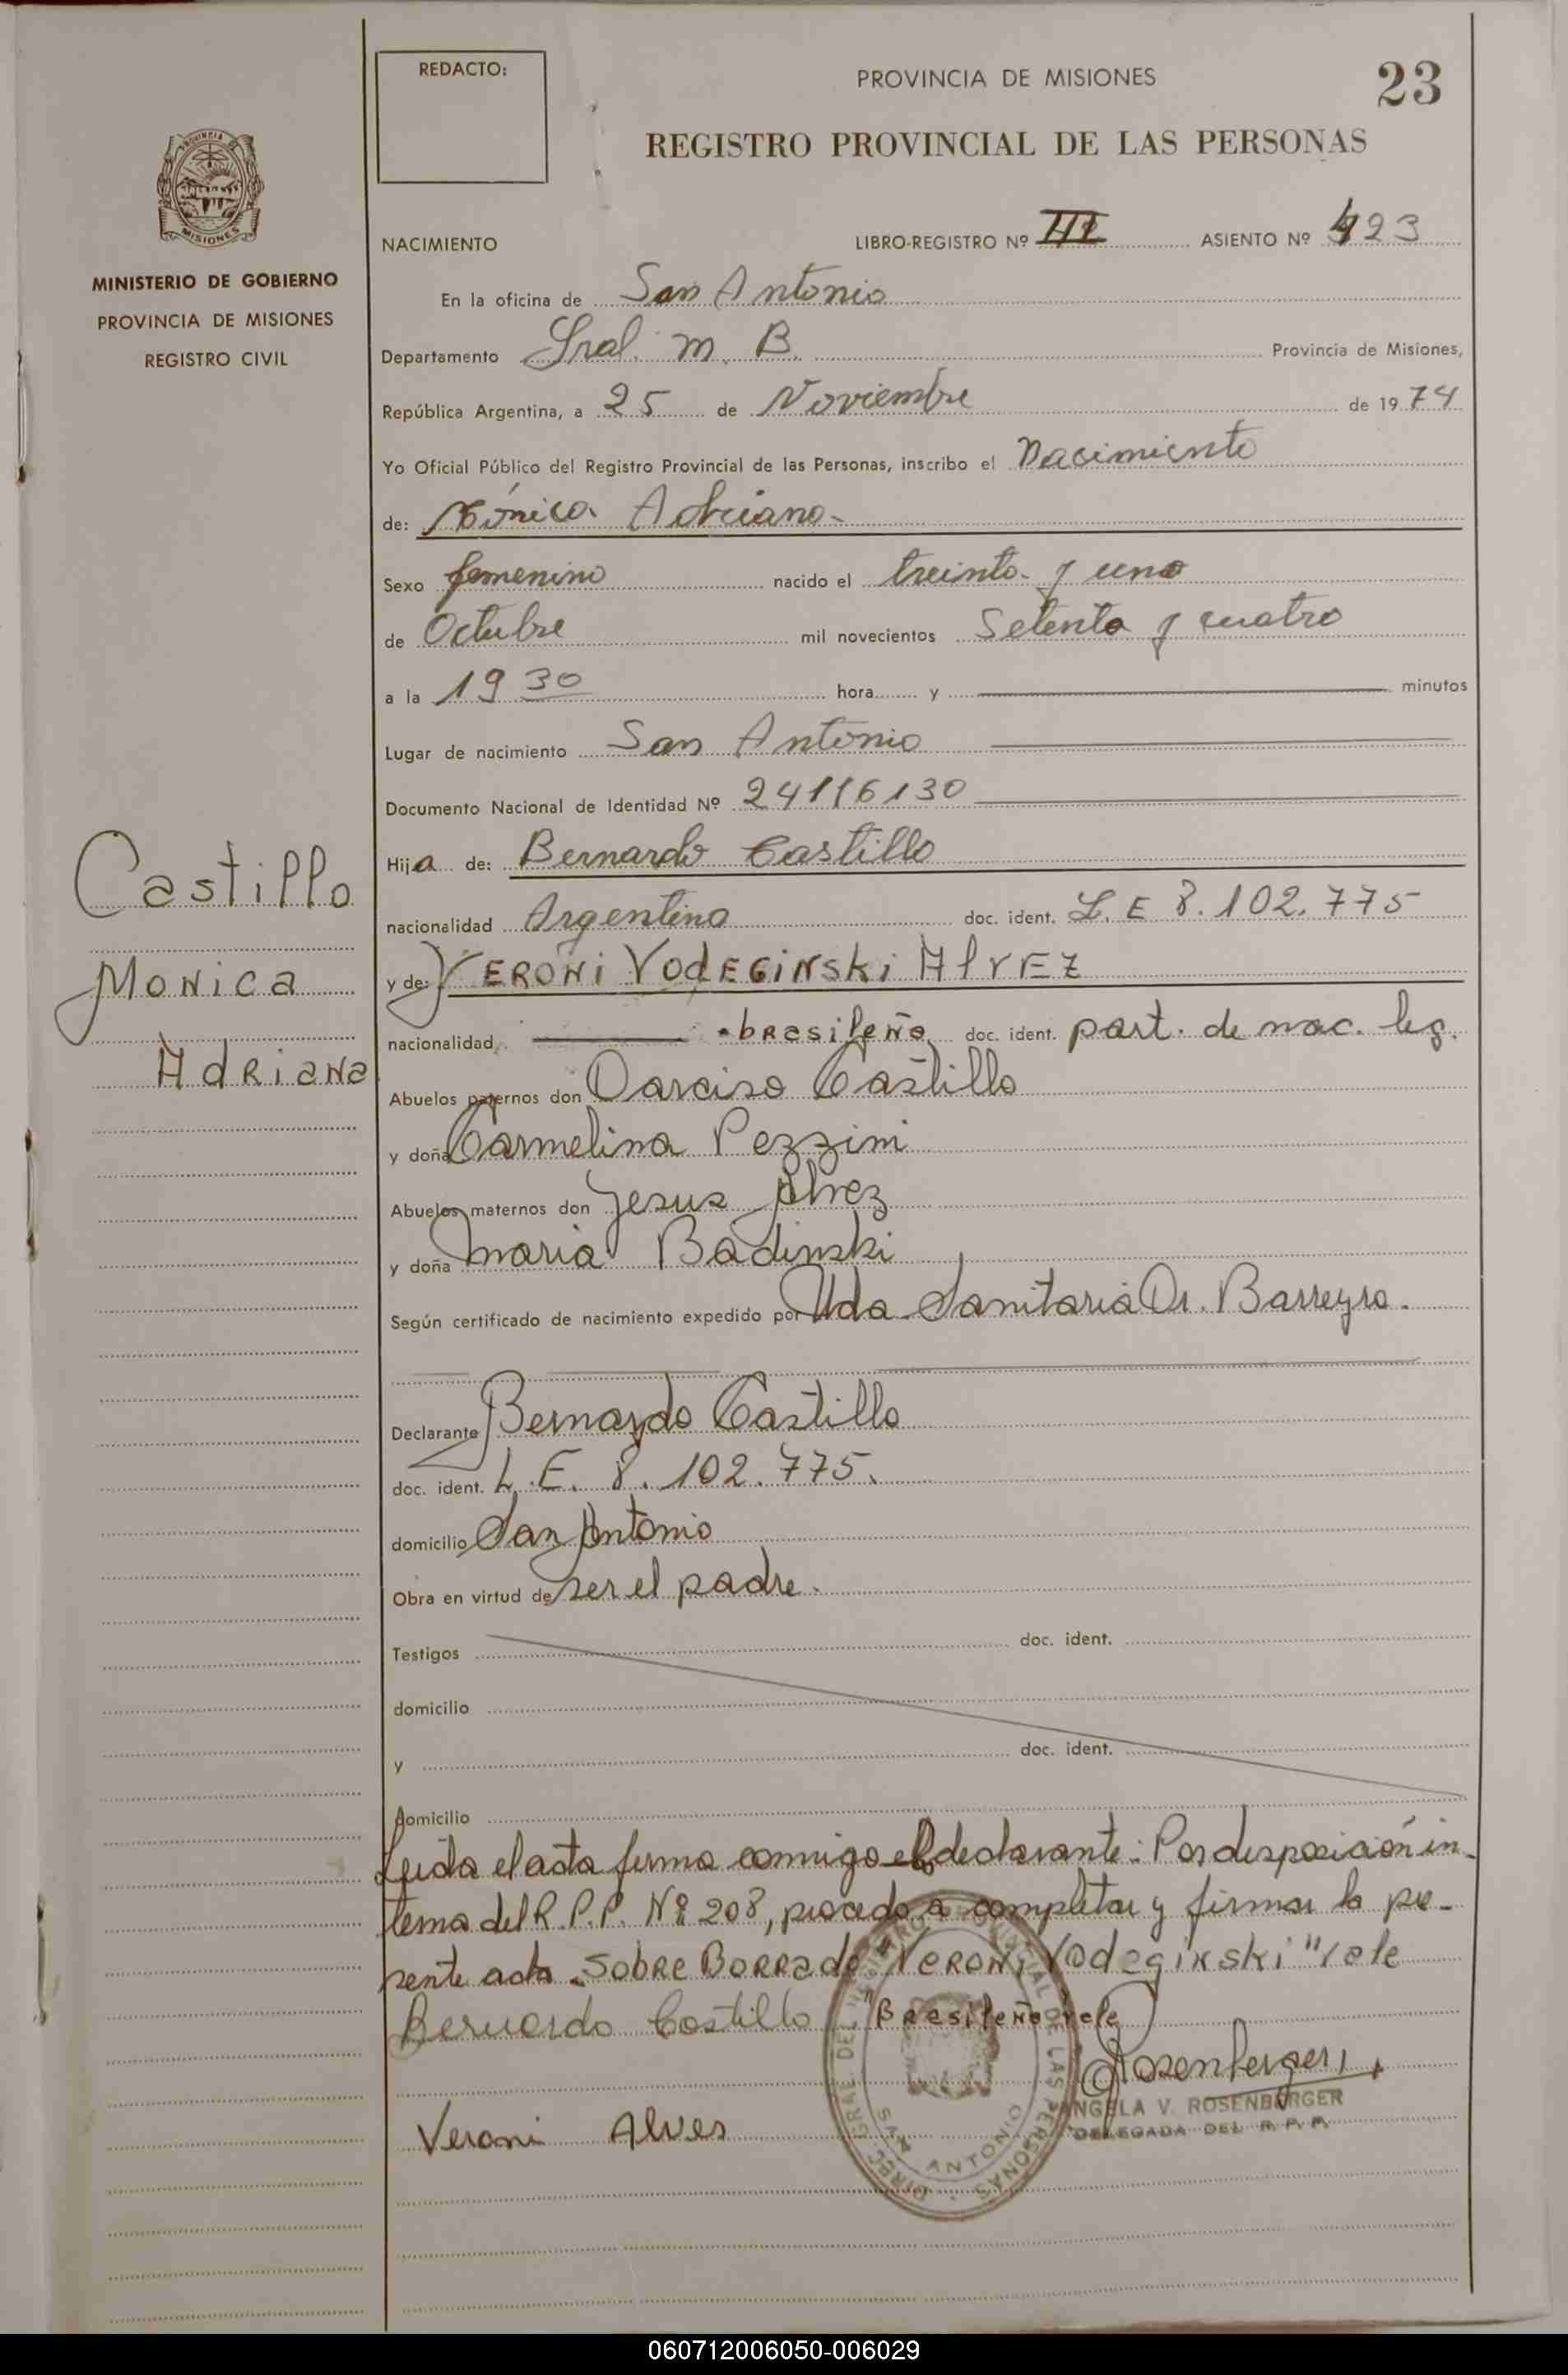 REDACTO:
PROVINCIA DE MISIONES
23
REGISTRO PROVINCIAL DE LAS PERSONAS
PROVINCIA
MISIONES
MINISTERIO DE GOBIERNO
PROVINCIA DE MISIONES
REGISTRO CIVIL
NACIMIENTO LIBRO-REGISTRO Nº III ASIENTO Nº 423
En la oficina de San Antonio
Departamento Gral. M. B. Provincia de Misiones,
República Argentina, a 25 de Noviembre de 1974
Yo Oficial Público del Registro Provincial de las Personas, inscribo el Nacimiento
de: Mónica Adriana-
Sexo femenino nacido el treinta y uno
de Octubre mil novecientos Setenta y cuatro
a la 19 30 hora y minutos
Lugar de nacimiento San Antonio
Documento Nacional de Identidad Nº 24116130
Hija de: Bernardo Castillo
nacionalidad Argentina doc. ident. L. E 8.102.775
y de: VERONI VODEGINSKI AlVEZ
nacionalidad brasileña doc. ident. part. de nac. leg.
Castillo
Monica
Adriana
Abuelos paternos don Darciso Castillo
y doña Carmelina Pezzini
Abuelos maternos don Jesus Alvez
y doña Maria Badinski
Según certificado de nacimiento expedido por Uda Sanitaria Dr. Barreyro.
Declarante Bernardo Castillo
doc. ident. L. E. 8. 102. 775.
domicilio San Antonio
Obra en virtud de ser el padre.
Testigos doc. ident.
domicilio
y doc. ident.
domicilio
Leida el acta firma conmigo el declarante: Por disposición in-
terna del R.P.P. Nº 208, procedo a completar y firmar la pre-
sente acta. Sobre Borrado "Veroni Vodeginski" vale
Bernardo Castillo "Brasileña" vale
Rosenberger
ANGELA V. ROSENBERGER
DELEGADA DEL R. P. P.
Veroni Alves
DIREC. GRAL. DEL REGISTRO PROVINCIAL DE LAS PERSONAS
SAN ANTONIO
060712006050-006029